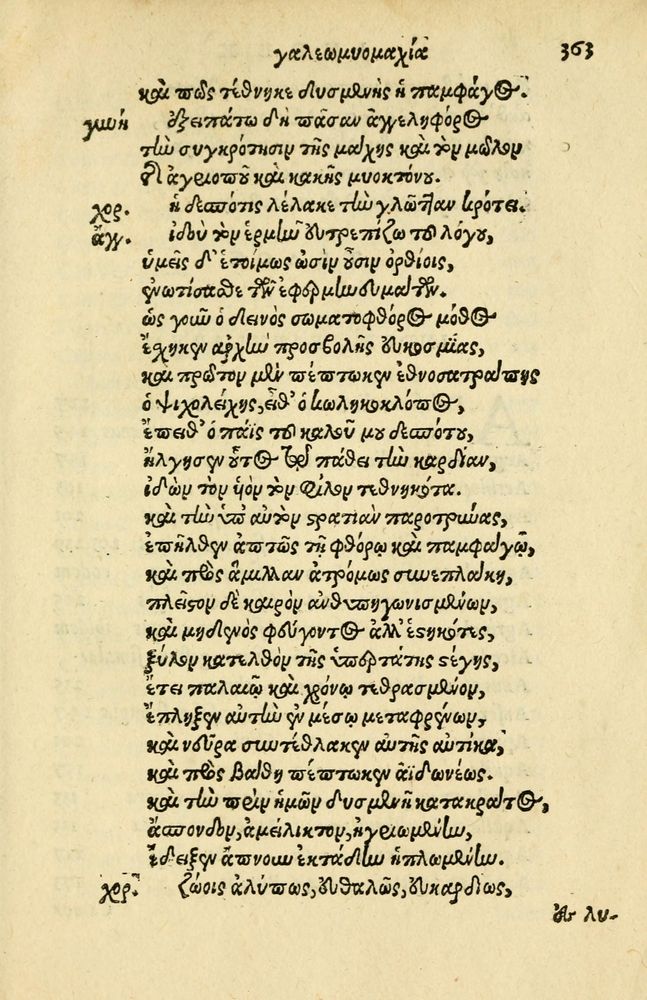 γαλεωμυομαχία 363
καὶ πῶς τέθνηκε δυσμενὴς ἡ παμφάγος.
γυνή ὀξειπάτω δὴ πᾶσαν ἀγγεληφόρος
τὴν συγκρότησιν τῆς μάχης καὶ τὸν μῶλον
ἀγριωποῦ καὶ κακῆς μυοκτόνου.
χορ. ἡ δεσπότις λέλακε τὴν γλῶτταν κρότει.
ἄγγ. ἰδοὺ τὸν ἑρμῖν εὐτρεπίζω τοῦ λόγου,
ὑμεῖς δ' ἑτοίμως ὠσὶν οὖσιν ὀρθίοις,
ἐνωτίσασθε τῶν ἐφερμηνευμάτων.
ὡς γοῦν ὁ δεινὸς σωματοφθόρος μόθος
ἔσχηκεν ἀρχὴν προσβολῆς εὐκοσμίας,
καὶ πρῶτον μὲν πέπτωκεν ἐθνοσατράπης
ὁ ψιχολείχης, εἶθ' ὁ κωληκοκλόπος,
ἔπειθ' ὁ παῖς τοῦ καλοῦ μου δεσπότου,
ἤλγησεν οὗτος τῷ πάθει τὴν καρδίαν,
ἰδὼν τὸν υἱὸν τὸν φίλον τεθνηκότα.
καὶ τὴν ὑπ' αὐτὸν στρατιὰν παροτρύνας,
ἐπῆλθεν ἀπτῶς τῇ φθόρῳ καὶ παμφάγῳ,
καὶ πρὸς ἅμιλλαν ἀτρόμως συνεπλάκη,
πλεῖστον δὲ καιρὸν ἀνθυπηγωνισμένων,
καὶ μηδενὸς φεύγοντος ἀλλ' ἑστηκότες,
ξύλον κατελθὸν τῆς ὑπερτάτης στέγης,
ἔτει παλαιῷ καὶ χρόνῳ τεθρασμένον,
ἔπληξεν αὐτὴν ἐν μέσῳ μεταφρένων,
καὶ νεῦρα συντέθλακεν αὐτῆς αὐτίκα,
καὶ πρὸς βάθη πέπτωκεν ἀϊδωνέως.
καὶ τὴν πρὶν ἡμῶν δυσμενῆ κατακράτος,
ἄσπονδον, ἀμείλικτον, ἠγριωμένην,
ἔδειξεν ἄπνουν ἐκτάδην ἡπλωμένην.
χορ. ζώοις ἀλύπως, εὐθαλῶς, εὐκαρδίως,
λυ-